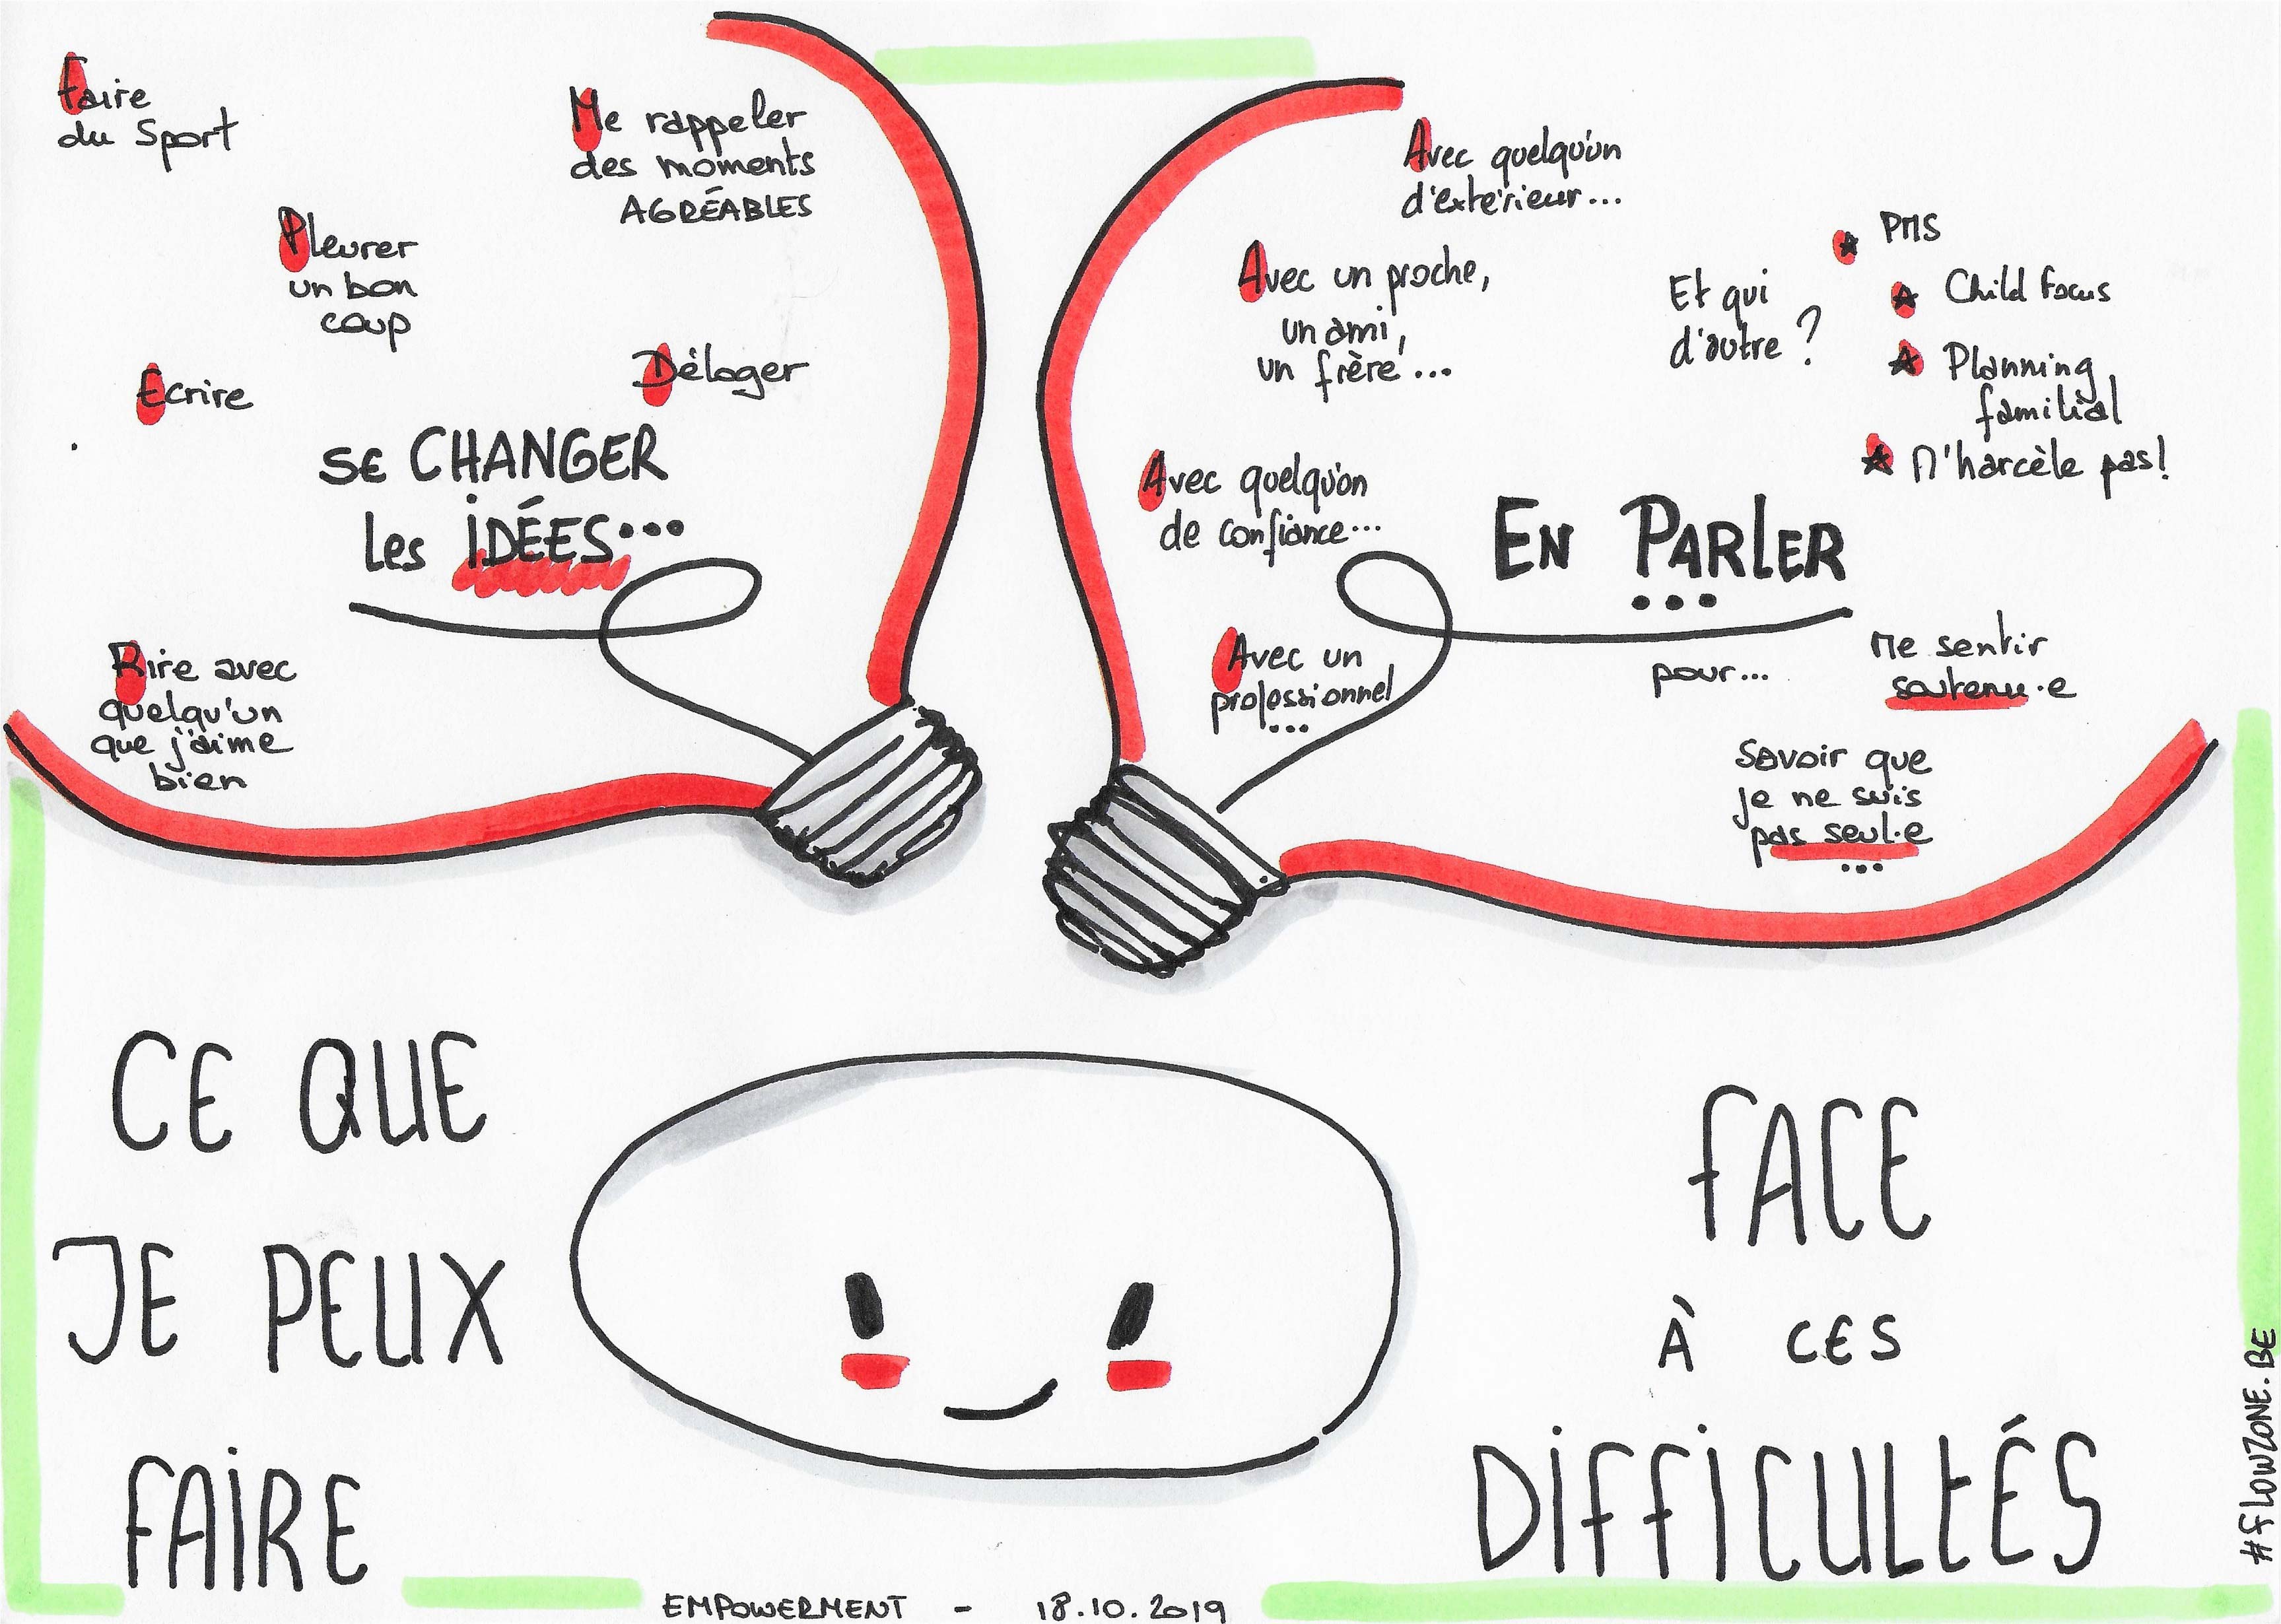 Faire
du Sport
Me rappeler
des moments
AGRÉABLES
Pleurer
un bon
coup
Ecrire
Déloger
SE CHANGER
les IDÉES...
Rire avec
quelqu'un
que j'aime
bien
Avec quelqu'un
d'extérieur...
Avec un proche,
un ami,
un frère...
Et qui
d'autre ?
PMS
Child Focus
Planning
familial
N'harcèle pas!
Avec quelqu'un
de confiance...
EN PARLER
...
Avec un
professionnel
...
pour...
Me sentir
soutenu·e
Savoir que
je ne suis
pas seul·e
...
CE QUE
JE PEUX
FAIRE
FACE
À CES
DIFFICULTÉS
EMPOWERMENT - 18.10.2019
#FLOWZONE.BE